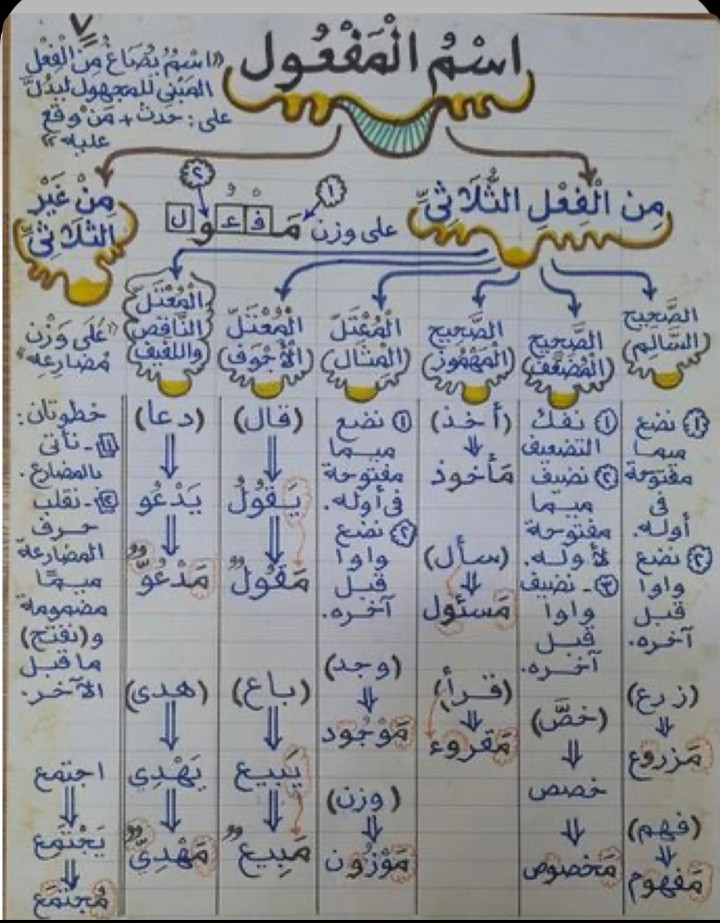 اسْمُ الْمَفْعُول
«اسْمٌ يُصَاغُ مِنَ الْفِعْل
المَبْنِي للمجهول ليَدُلَّ
على: حدث + مَنْ وقع
عليه»
مِن الْفِعْلِ الثُّلَاثِيِّ
على وزن مَـفْـعُـول
①
②
مِنْ غَيْرِ
الثُّلَاثِيِّ
الصَّحِيح
السَّالِم
① نضع
ميما
مفتوحة
فى
أوله.
② نضع
واوا
قبل
آخره.
(زرع)
مَزروع
(فهم)
مَفهوم
الصَّحِيح
الْمُضَعَّف
① نفك
التضعيف
② نضيف
ميما
مفتوحة
لأوله.
③ـ نضيف
واوا
قبل
آخره.
(خصَّ)
خصص
مَخصوص
الصَّحِيح
الْمَهْمُوز
(أخذ)
مَأخوذ
(سأل)
مَسئول
(قرأ)
مَقروء
الْمُعْتَلّ
(الْمِثَال)
① نضع
ميما
مفتوحة
فى أوله.
② نضع
واوا
قبل
آخره.
(وجد)
مَوْجُود
(وزن)
مَوْزُون
الْمُعْتَلّ
الْأَجْوَف
(قال)
يَقُولُ
مَقُولٌ
(باع)
يَبيع
مَبِيعٌ
الْمُعْتَلّ
النَّاقِص
واللفيف
(دعا)
يَدْعُو
مَدْعُوٌّ
(هدى)
يَهْدِي
مَهْدِيٌّ
«عَلَى وَزْنِ
مُضَارِعِه»
خطوتان:
①ـ نأتى
بالمضارع.
②ـ نقلب
حرف
المضارعة
ميمًا
مضمومة
و(نفتح)
ما قبل
الآخر.
اجتمع
يَجْتَمع
مُجتمَع